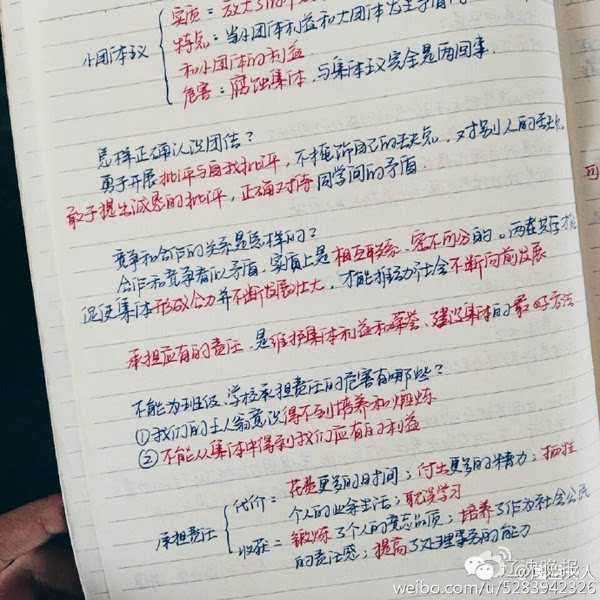 实质：放大了的个
小团体主义
特点：当小团体利益和大团体发生矛盾时，
和小团体的利益.
危害：腐蚀集体，与集体主义完全是两回事.
怎样正确认识团结？
勇于开展批评与自我批评，不掩饰自己的缺点，对别人的缺点
敢于提出诚恳的批评，正确对待同学间的矛盾.
竞争和合作的关系是怎样的？
合作和竞争看似矛盾，实质上是相互联系、密不可分的。两者共存才能
促使集体形成合力并不断发展壮大，才能推动社会不断向前发展
承担应有的责任，是维护集体利益和荣誉、建设集体的最好方法
不能为班级、学校承担责任的危害有哪些？
①我们的主人翁意识得不到培养和锻炼
②不能从集体中得到我们应有的利益
承担责任
代价：花费更多的时间；付出更多的精力；牺牲
个人的业余生活；耽误学习
收获：锻炼了个人的意志品质；培养了作为社会公民
的责任感；提高了处理事务的能力
可
辽沈晚报
weibo.com/u/5283942326